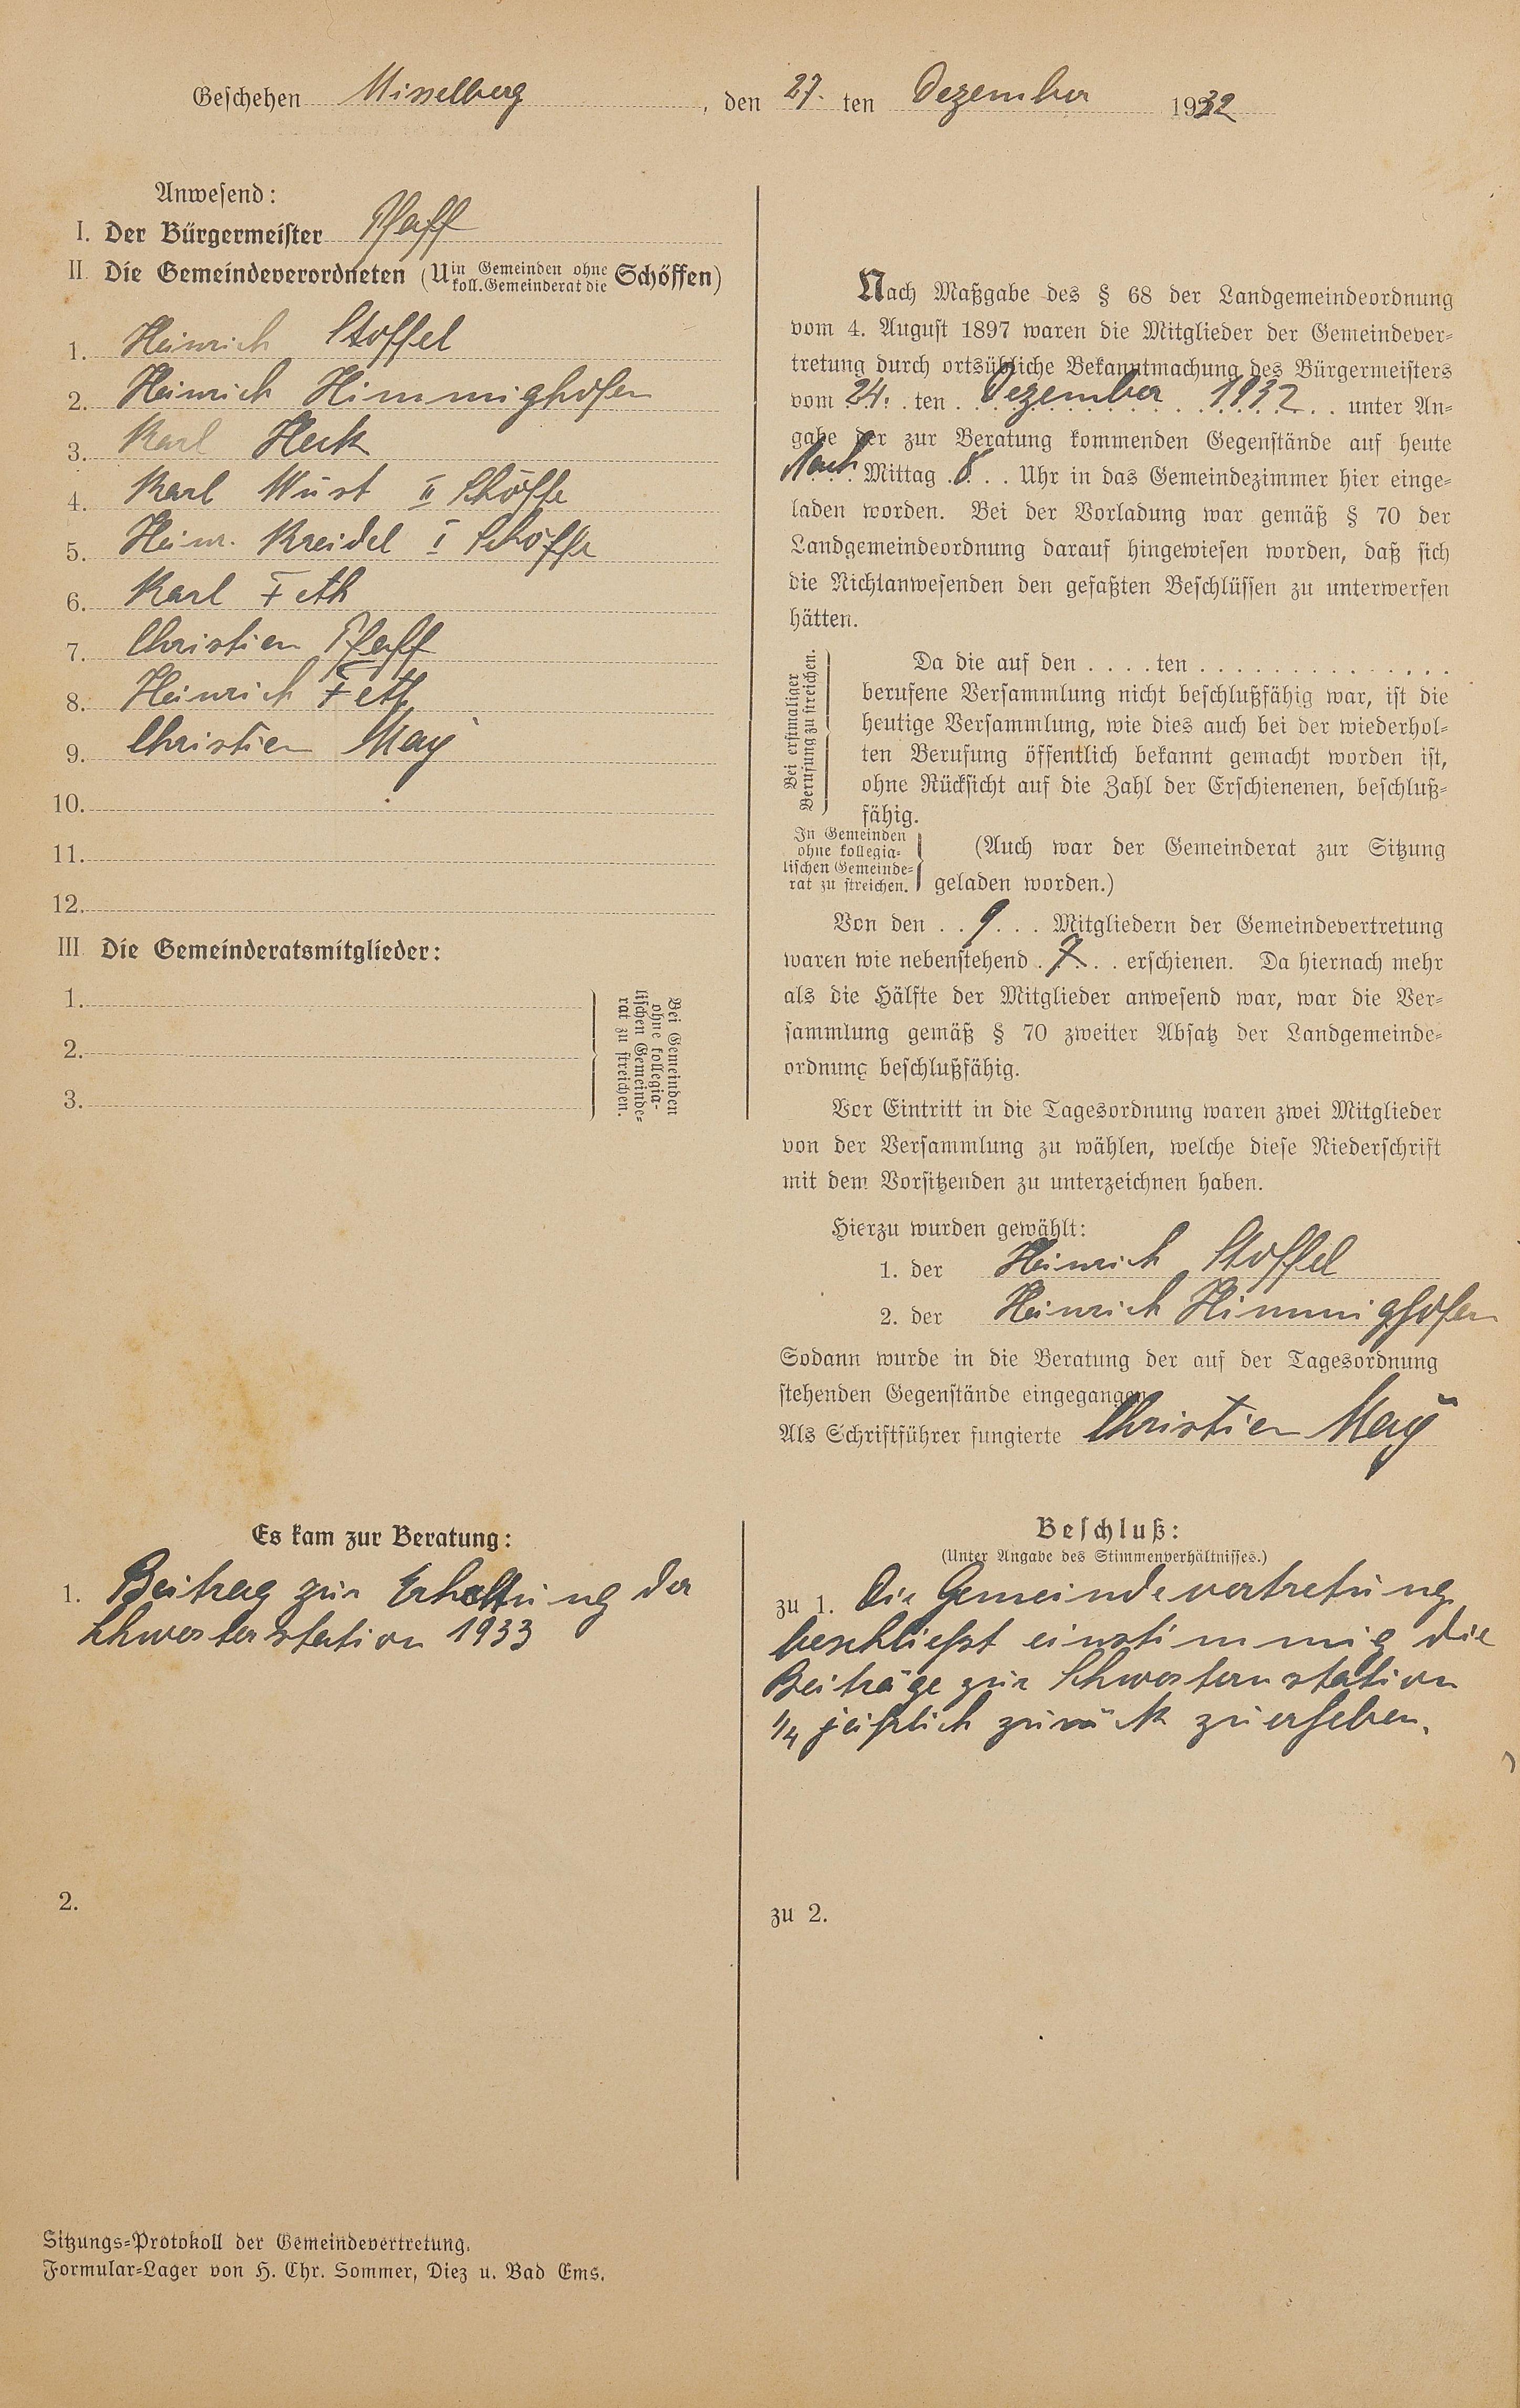 Geschehen Misselberg, den 27. ten Dezember 1932
Anwesend:
I. Der Bürgermeister Pfaff
II. Die Gemeindeverordneten (U in Gemeinden ohne koll. Gemeinderat die Schöffen)
1. Heinrich Stoffel
2. Heinrich Himmighofen
3. Karl Heck
4. Karl Wüst II Schöffe
5. Heinr. Kreidel I Schöffe
6. Karl Feth
7. Christian Pfaff
8. Heinrich Feth
9. Christian May
10.
11.
12.
III Die Gemeinderatsmitglieder:
1.
2.
3.
Bei Gemeinden
ohne kollegia-
lischen Gemeinde-
rat zu streichen.
Nach Maßgabe des § 68 der Landgemeindeordnung
vom 4. August 1897 waren die Mitglieder der Gemeindever-
tretung durch ortsübliche Bekanntmachung des Bürgermeisters
vom 24. ten Dezember 1932 unter An-
gabe der zur Beratung kommenden Gegenstände auf heute
Nach Mittag 8 Uhr in das Gemeindezimmer hier einge-
laden worden. Bei der Vorladung war gemäß § 70 der
Landgemeindeordnung darauf hingewiesen worden, daß sich
die Nichtanwesenden den gefaßten Beschlüssen zu unterwerfen
hätten.
Bei erstmaliger
Berufung zu streichen.
Da die auf den . . . . ten . . . . . . . . . . . . . .
berufene Versammlung nicht beschlußfähig war, ist die
heutige Versammlung, wie dies auch bei der wiederhol-
ten Berufung öffentlich bekannt gemacht worden ist,
ohne Rücksicht auf die Zahl der Erschienenen, beschluß-
fähig.
In Gemeinden
ohne kollegia-
lischen Gemeinde-
rat zu streichen.
(Auch war der Gemeinderat zur Sitzung
geladen worden.)
Von den . . 9 . . . Mitgliedern der Gemeindevertretung
waren wie nebenstehend . 7 . . . erschienen. Da hiernach mehr
als die Hälfte der Mitglieder anwesend war, war die Ver-
sammlung gemäß § 70 zweiter Absatz der Landgemeinde-
ordnung beschlußfähig.
Vor Eintritt in die Tagesordnung waren zwei Mitglieder
von der Versammlung zu wählen, welche diese Niederschrift
mit dem Vorsitzenden zu unterzeichnen haben.
Hierzu wurden gewählt:
1. der Heinrich Stoffel
2. der Heinrich Himmighofen
Sodann wurde in die Beratung der auf der Tagesordnung
stehenden Gegenstände eingegangen.
Als Schriftführer fungierte Christian May
Es kam zur Beratung:
1. Beitrag zur Erhaltung der
Schwesterstation 1933
2.
Beschluß:
(Unter Angabe des Stimmenverhältnisses.)
zu 1. Die Gemeindevertretung
beschließt einstimmig die
Beiträge zur Schwesternstation
1/4 jährlich zurück zu erheben.
zu 2.
Sitzungs-Protokoll der Gemeindevertretung.
Formular-Lager von H. Chr. Sommer, Diez u. Bad Ems.